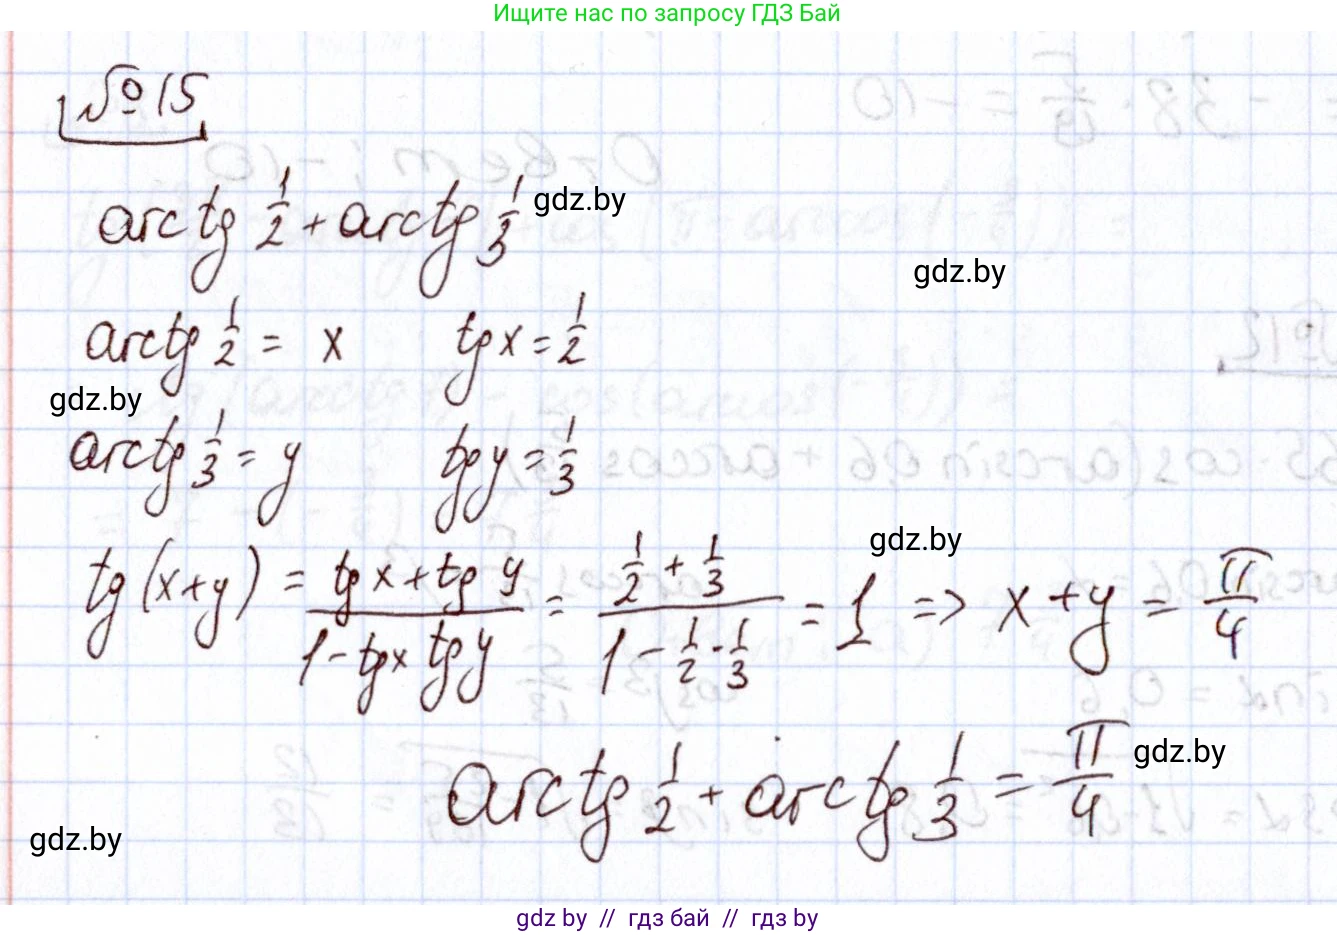 Ищите нас по запросу ГДЗ Бай
№15
arctg 1/2 + arctg 1/3
gdz.by
gdz.by
arctg 1/2 = x tg x = 1/2
gdz.by
arctg 1/3 = y tg y = 1/3
gdz.by
tg (x+y) = (tg x + tg y)/(1 - tg x tg y) = (1/2 + 1/3)/(1 - 1/2 · 1/3) = 1 => x + y = π/4
arctg 1/2 + arctg 1/3 = π/4
gdz.by
gdz.by
gdz by // гдз бай // гдз by